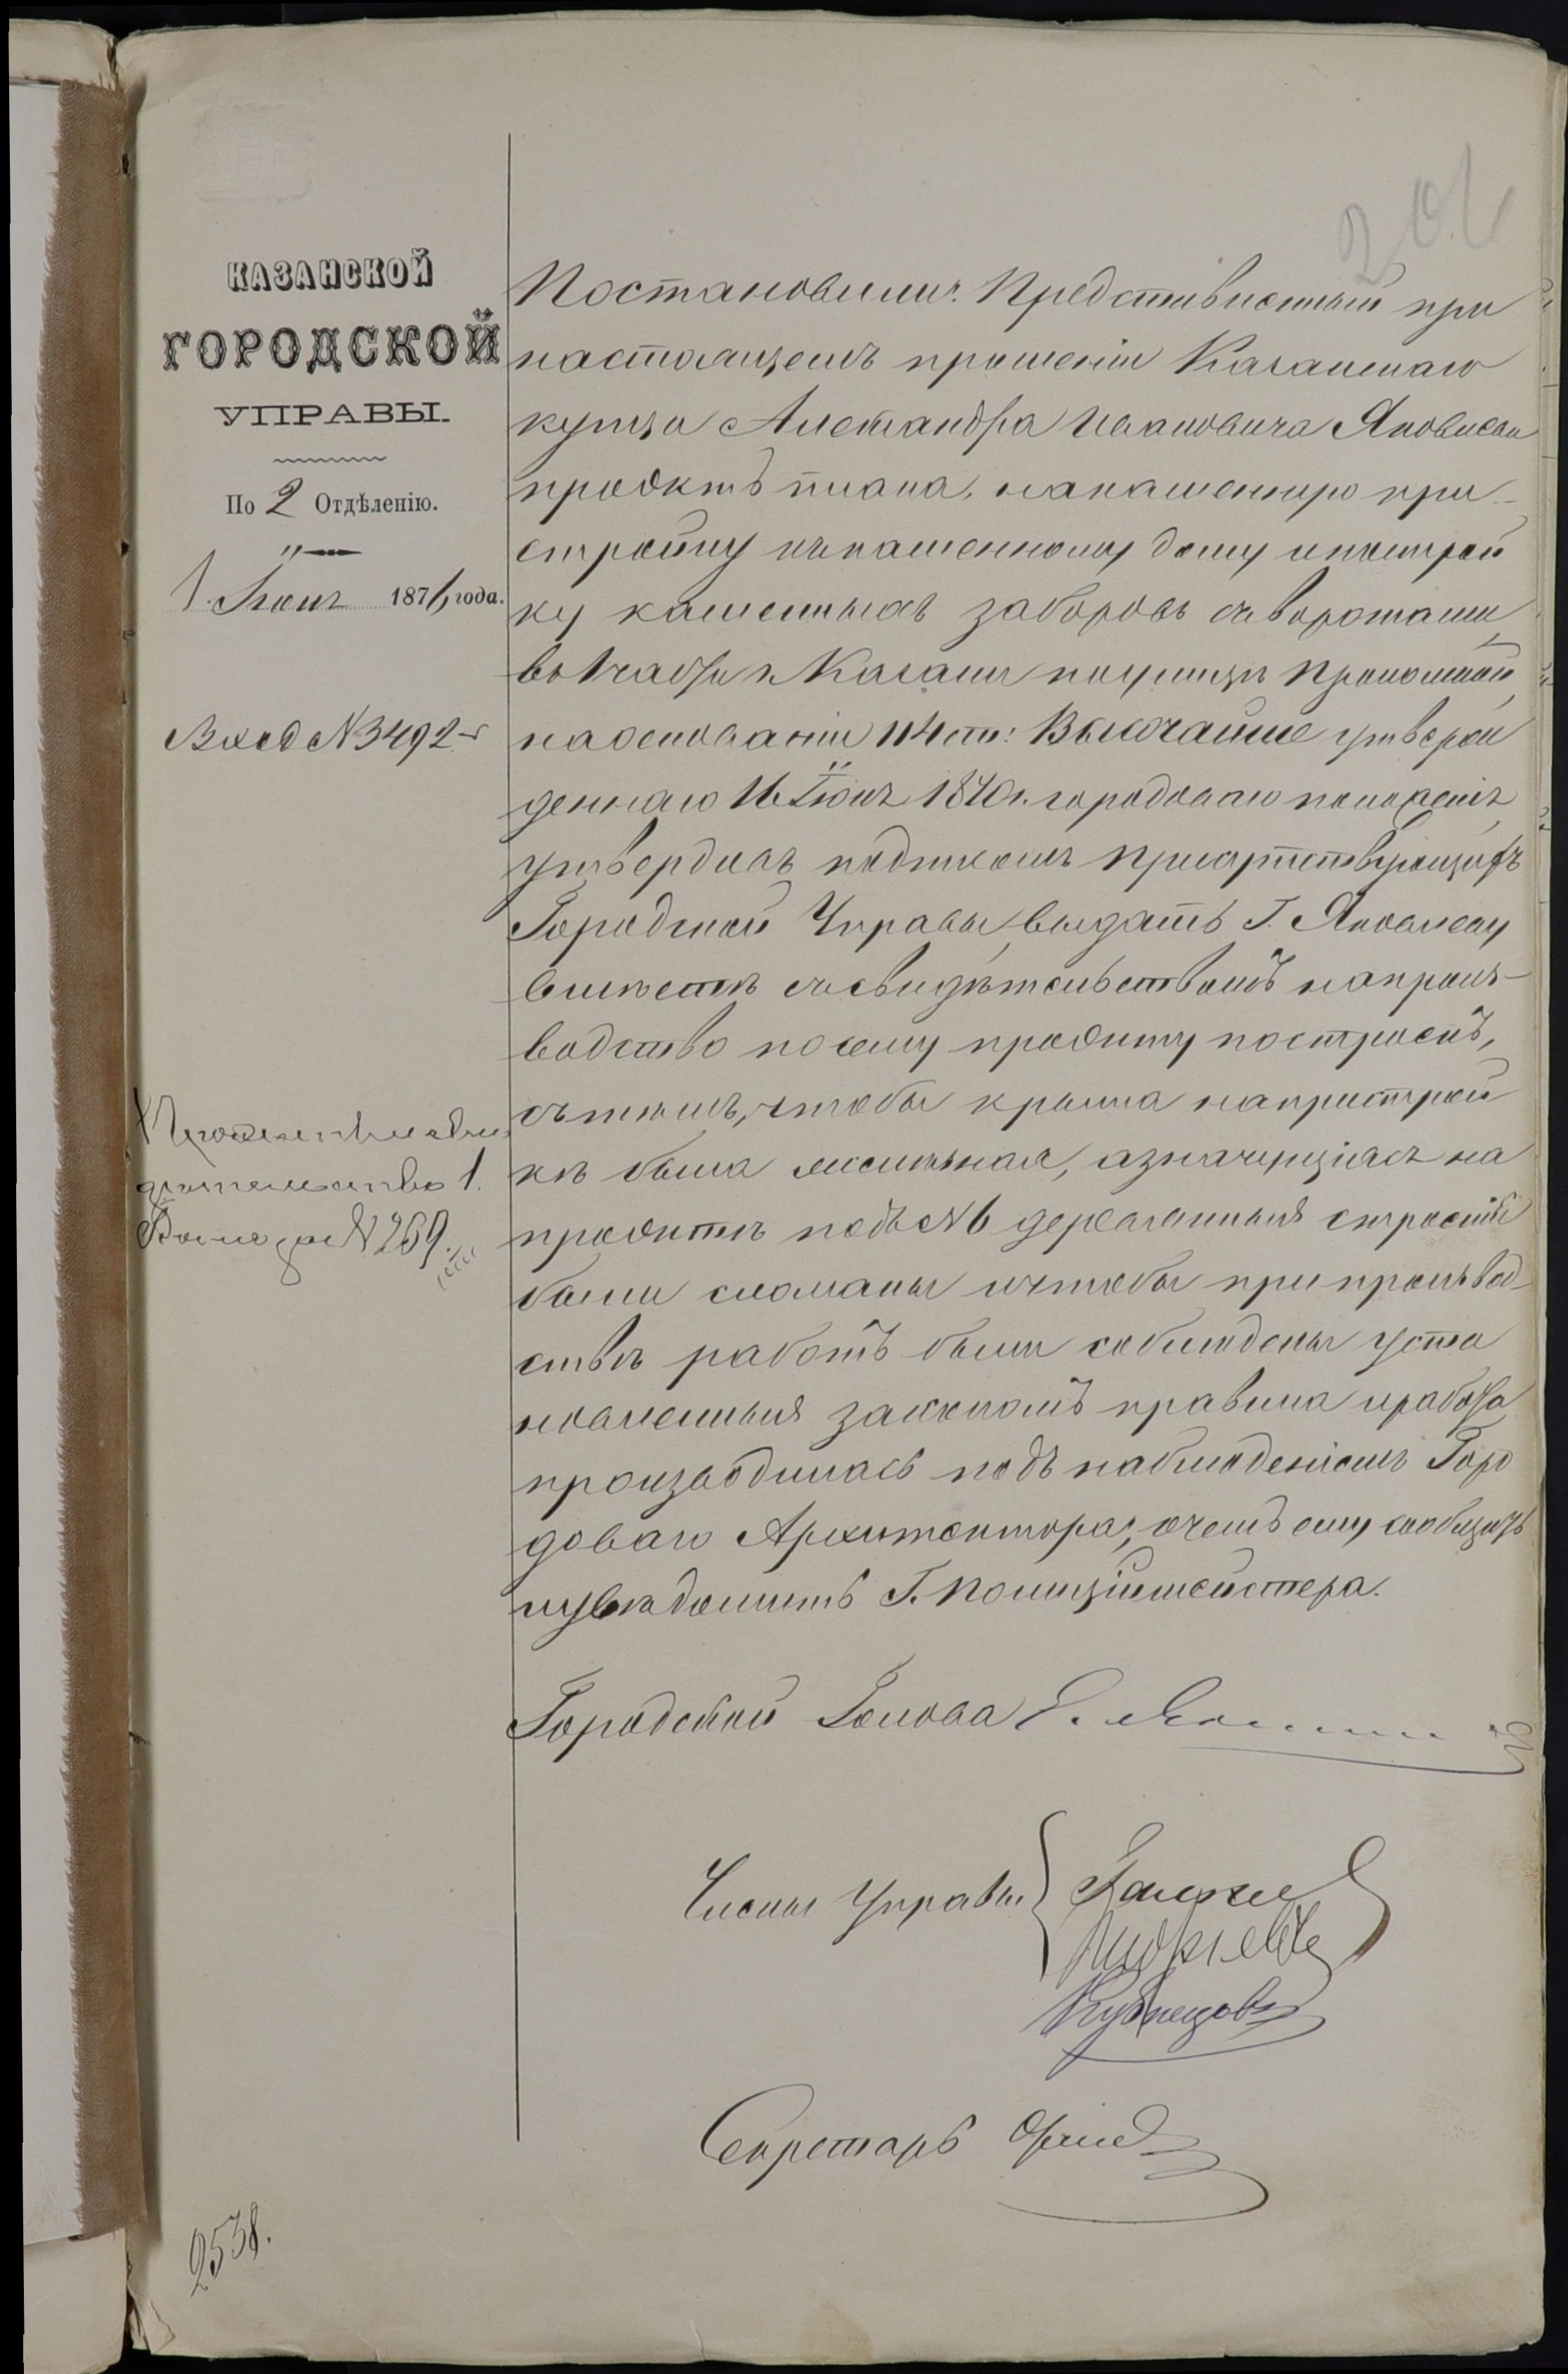 КАЗАНСКОЙ
ГОРОДСКОЙ
УПРАВЫ.
По 2 Отдѣленію.
1 Іюня 1876 года.
Вход №3492
Постановили: Представленный при
настоящемъ прошеніи Казанскаго
купца Александра Ивановича Яковлева
проэктъ плана, на каменную при-
стройку къ каменному дому и построй
ку каменныхъ заборовъ съ воротами
во 1 части г. Казани по улицѣ Проломной
на основаніи 114 ст: Высочайше утверж
деннаго 16 Іюня 1870 г. городоваго положенія
утвердивъ подписомъ присутствующихъ
Городской Управы, выдать Г. Яковлеву
вмѣстѣ съ свидѣтельствомъ на произ-
водство по сему проэкту построекъ,
съ тѣмъ, чтобы крыша на пристрой
кѣ была желѣзная, а значущіяся на
проэктѣ подъ № 6 деревянныя строенія
были сломаны и чтобы при производ-
ствѣ работъ были соблюдены уста
новленныя закономъ правила и работа
производилась подъ наблюденіемъ Горо
доваго Архитектора, о чемъ ему сообщить
и увѣдомить Г. Полицiймейстера.
№ 269.
Городской Голова Е.
Члены Управы
Кузнецовъ
Секретарь
2538.